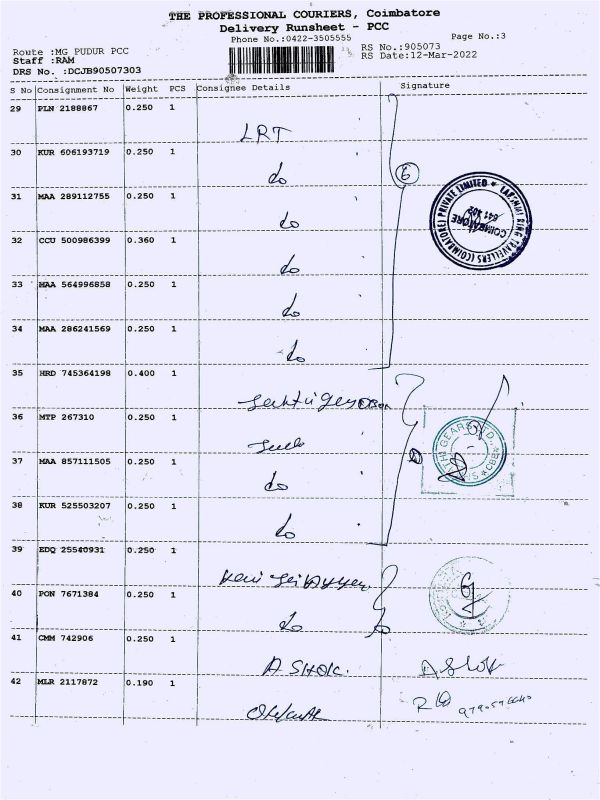 THE PROFESSIONAL COURIERS, Coimbatore
Delivery Runsheet - PCC
Phone No.:0422-3505555
Page No.:3
Route :MG PUDUR PCC
RS No.:905073
Staff :RAM
RS Date:12-Mar-2022
DRS No. :DCJB90507303
S No Consignment No Weight PCS Consignee Details Signature
29 PLN 2188867 0.250 1
LRT
30 KUR 606193719 0.250 1
do
6
31 MAA 289112755 0.250 1
do
LAKSHMI RING TRAVELLERS (COIMBATORE) PRIVATE LIMITED
COIMBATORE
641 402
32 CCU 500986399 0.360 1
do
33 MAA 564996858 0.250 1
do
34 MAA 286241569 0.250 1
do
35 HRD 745364198 0.400 1
36 MTP 267310 0.250 1
37 MAA 857111505 0.250 1
do
38 KUR 525503207 0.250 1
do
39 EDQ 25540931 0.250 1
40 PON 7671384 0.250 1
do
41 CMM 742906 0.250 1
A SHOK.
Ashok
42 MLR 2117872 0.190 1